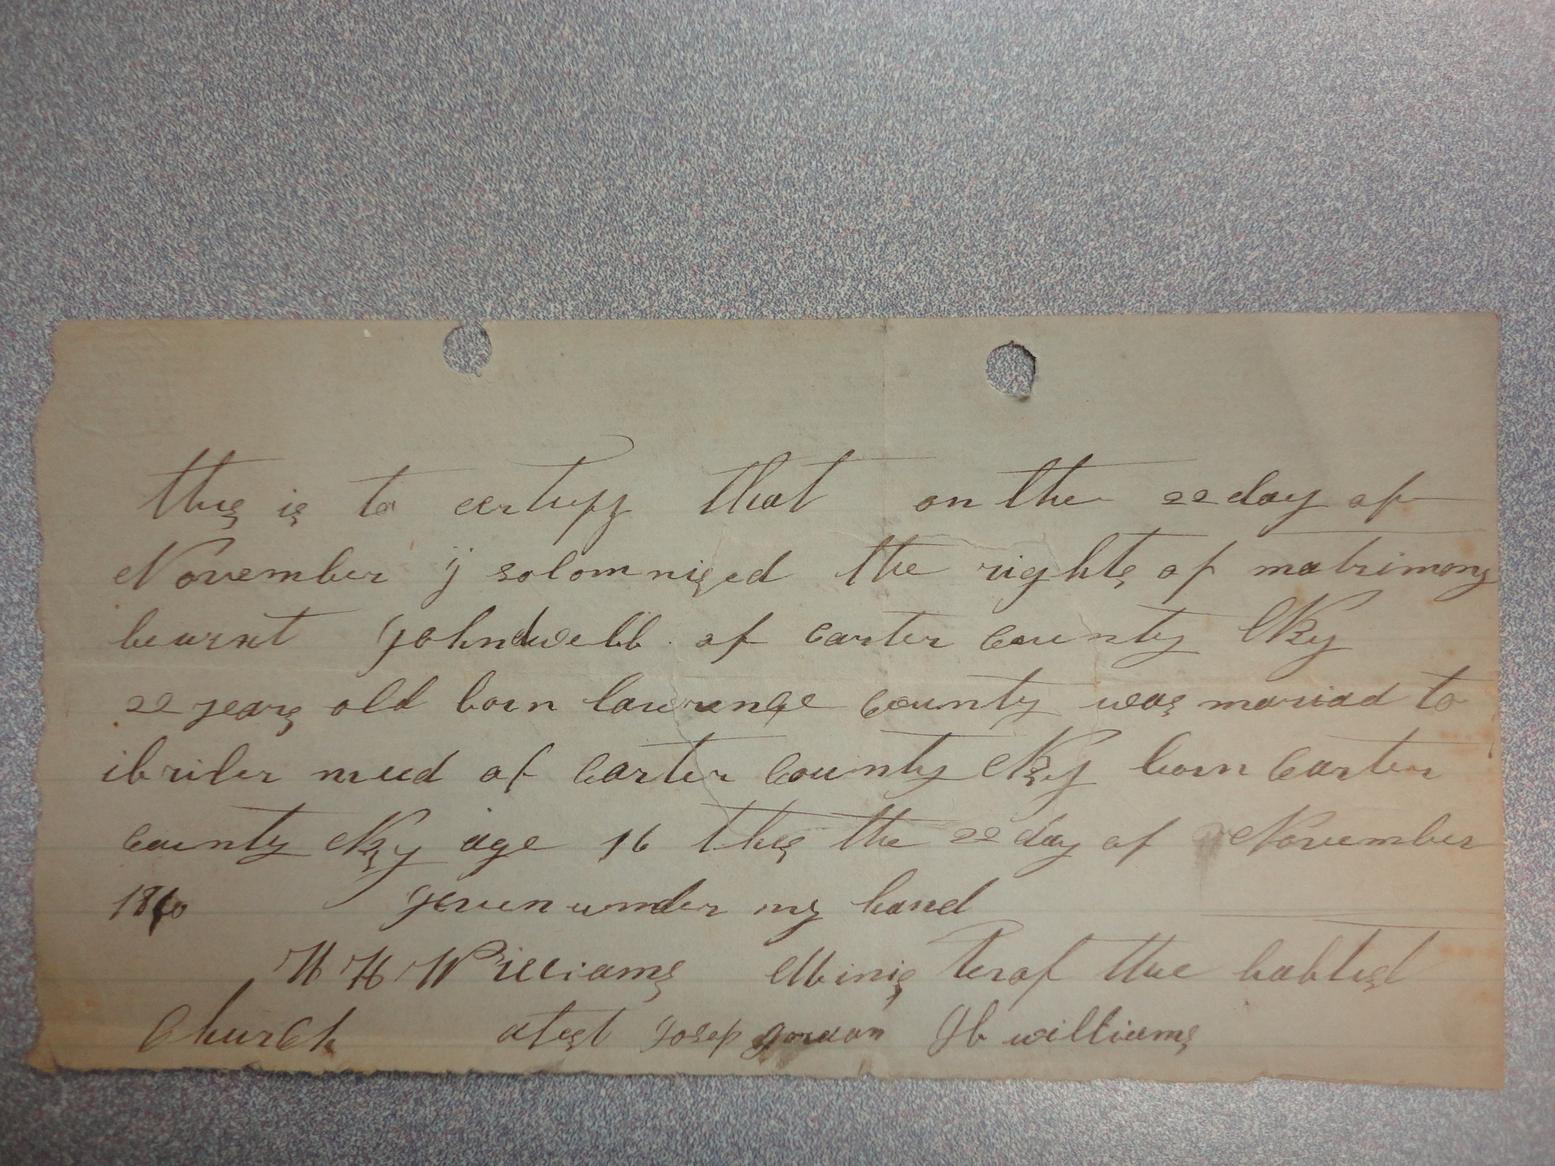 this is to certify that on the 22 day of
November ij solomnized the rights of matrimony
bewixt John Webb of Carter County Ky
22 years old born lawrence County was mariad to
of Carter County Ky born Carter
County Ky age 16 this the 22 day of November
geven under my hand
H H Williams Minis ter of the babtist
Church atest Josep J b williams